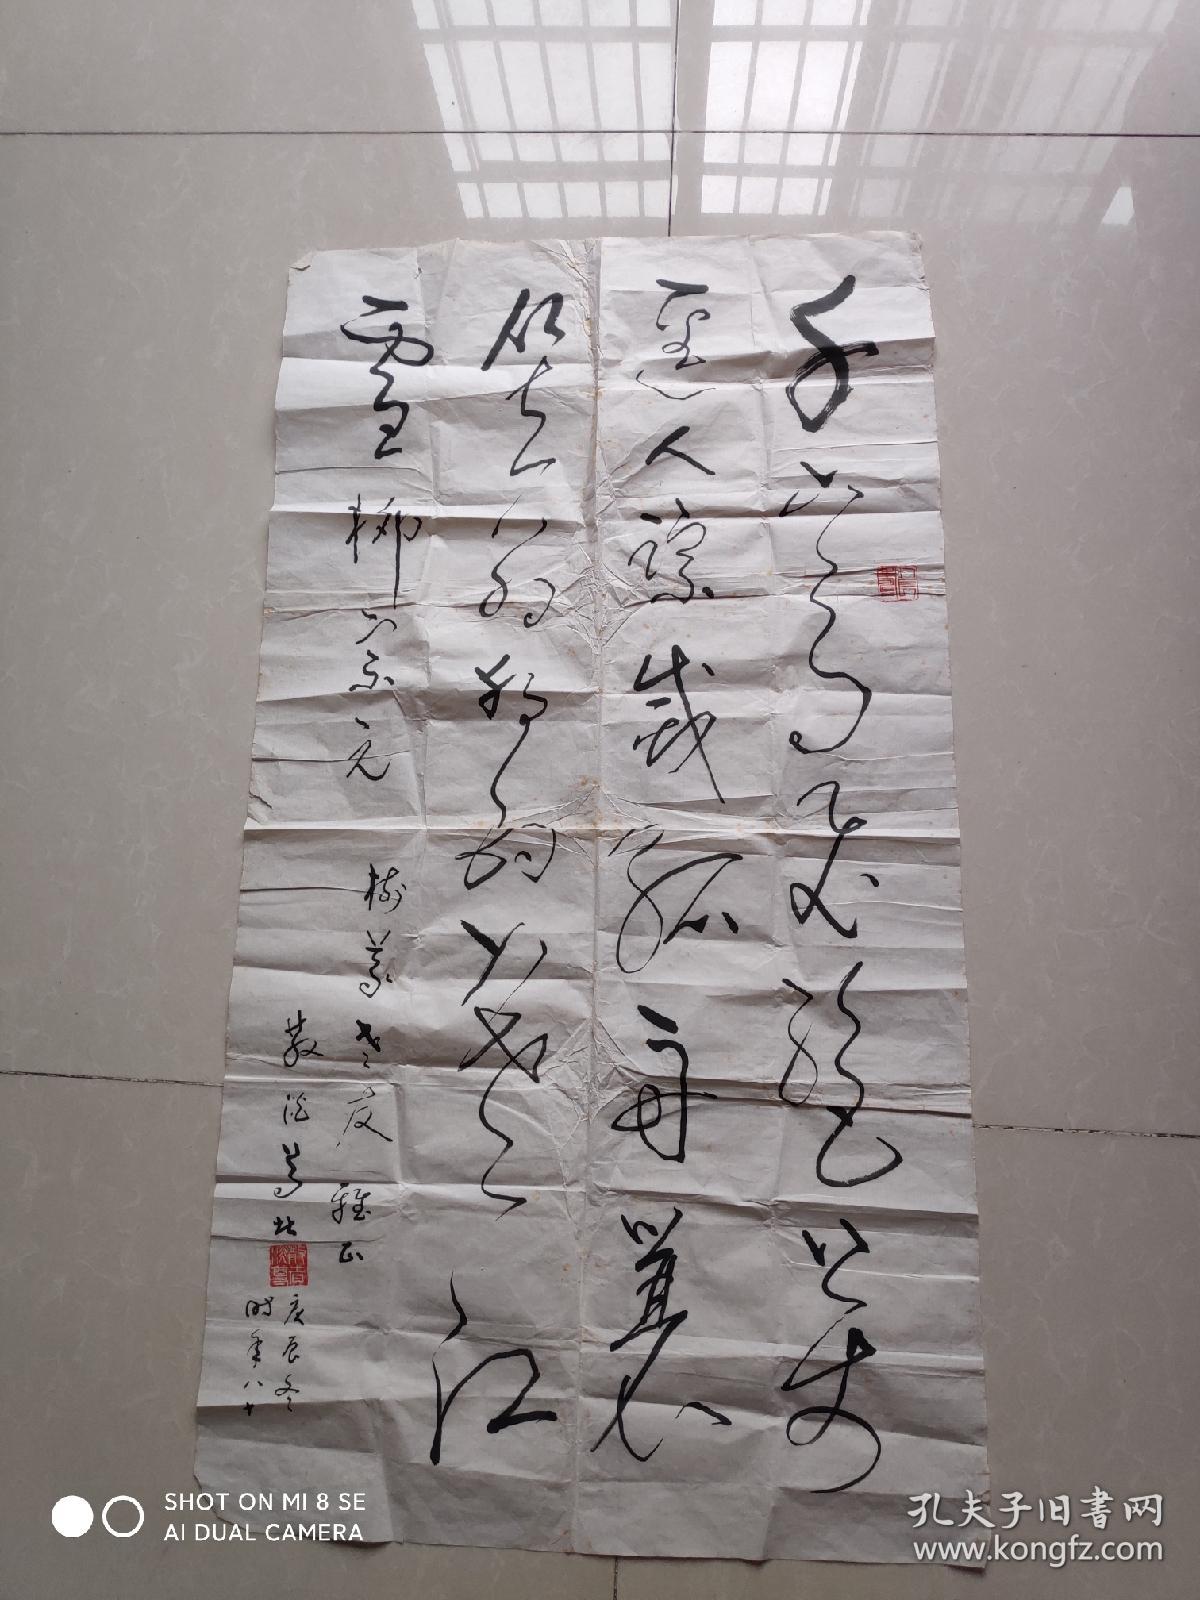 千山鳥飛絕萬
逕人踪滅孤舟蓑
笠翁獨釣寒江
雪 柳宗元
樹 老友雅正
庚辰冬
时年八十
SHOT ON MI 8 SE
AI DUAL CAMERA
孔夫子旧书网
www.kongfz.com